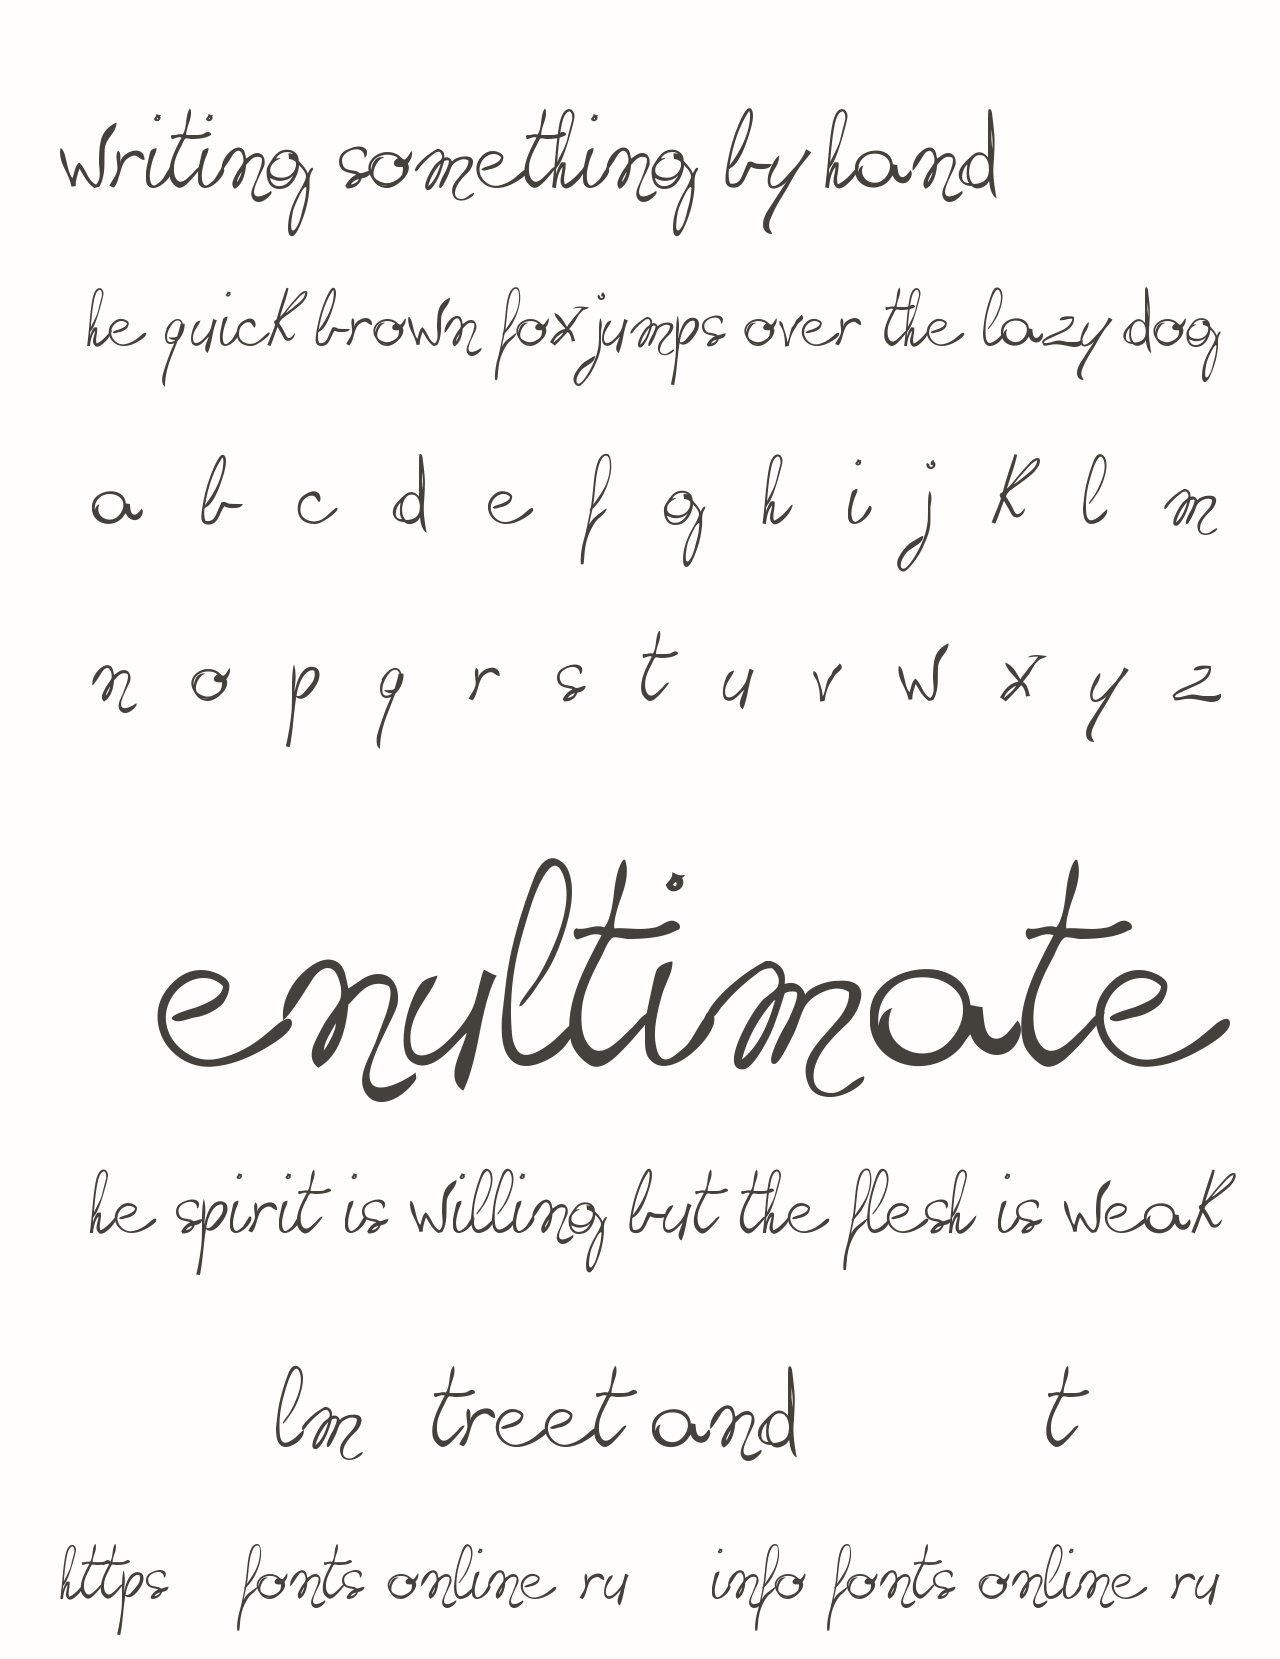 writing something by hand
he quick brown fox jumps over the lazy dog
a b c d e f g h i j k l m
n o p q r s t u v w x y z
enultimate
he spirit is willing but the flesh is weak
lm treet and t
https fonts online ru info fonts online ru